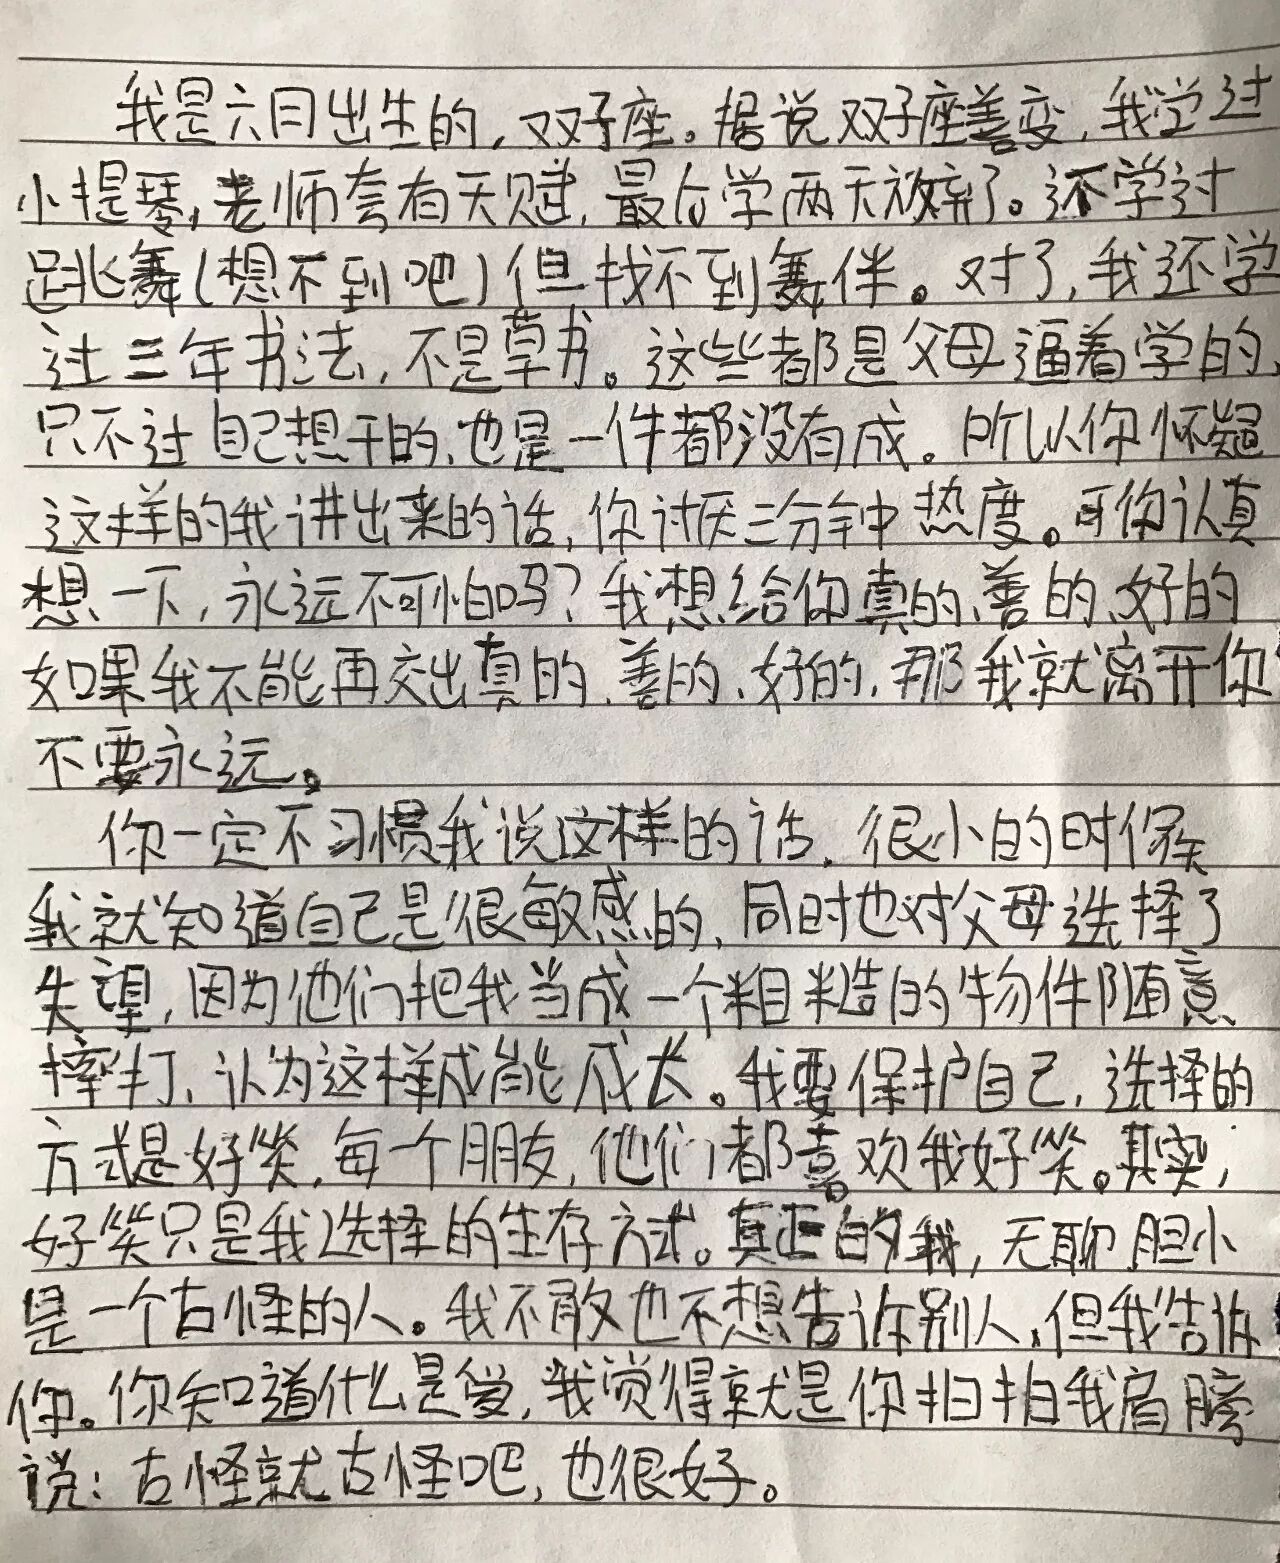 我是六月出生的,双子座。据说双子座善变,我学过
小提琴,老师夸有天赋,最后学两天放弃了。还学过
跳舞(想不到吧)但找不到舞伴。对了,我还学
过三年书法,不是草书。这些都是父母逼着学的,
只不过自己想干的,也是一件都没有成。所以你怀疑
这样的我讲出来的话,你讨厌三分钟热度。可你认真
想一下,永远不可怕吗?我想给你真的、善的、好的
如果我不能再交出真的、善的、好的,那我就离开你
不要永远。
你一定不习惯我说这样的话,很小的时候
我就知道自己是很敏感的,同时也对父母选择了
失望,因为他们把我当成一个粗糙的物件随意
摔打,认为这样成能成长。我要保护自己,选择的
方式是好笑,每个朋友,他们都喜欢我好笑。其实,
好笑只是我选择的生存方式。真正的我,无聊胆小
是一个古怪的人。我不敢也不想告诉别人,但我告诉
你。你知道什么是爱,我觉得就是你拍拍我肩膀
说:古怪就古怪吧,也很好。